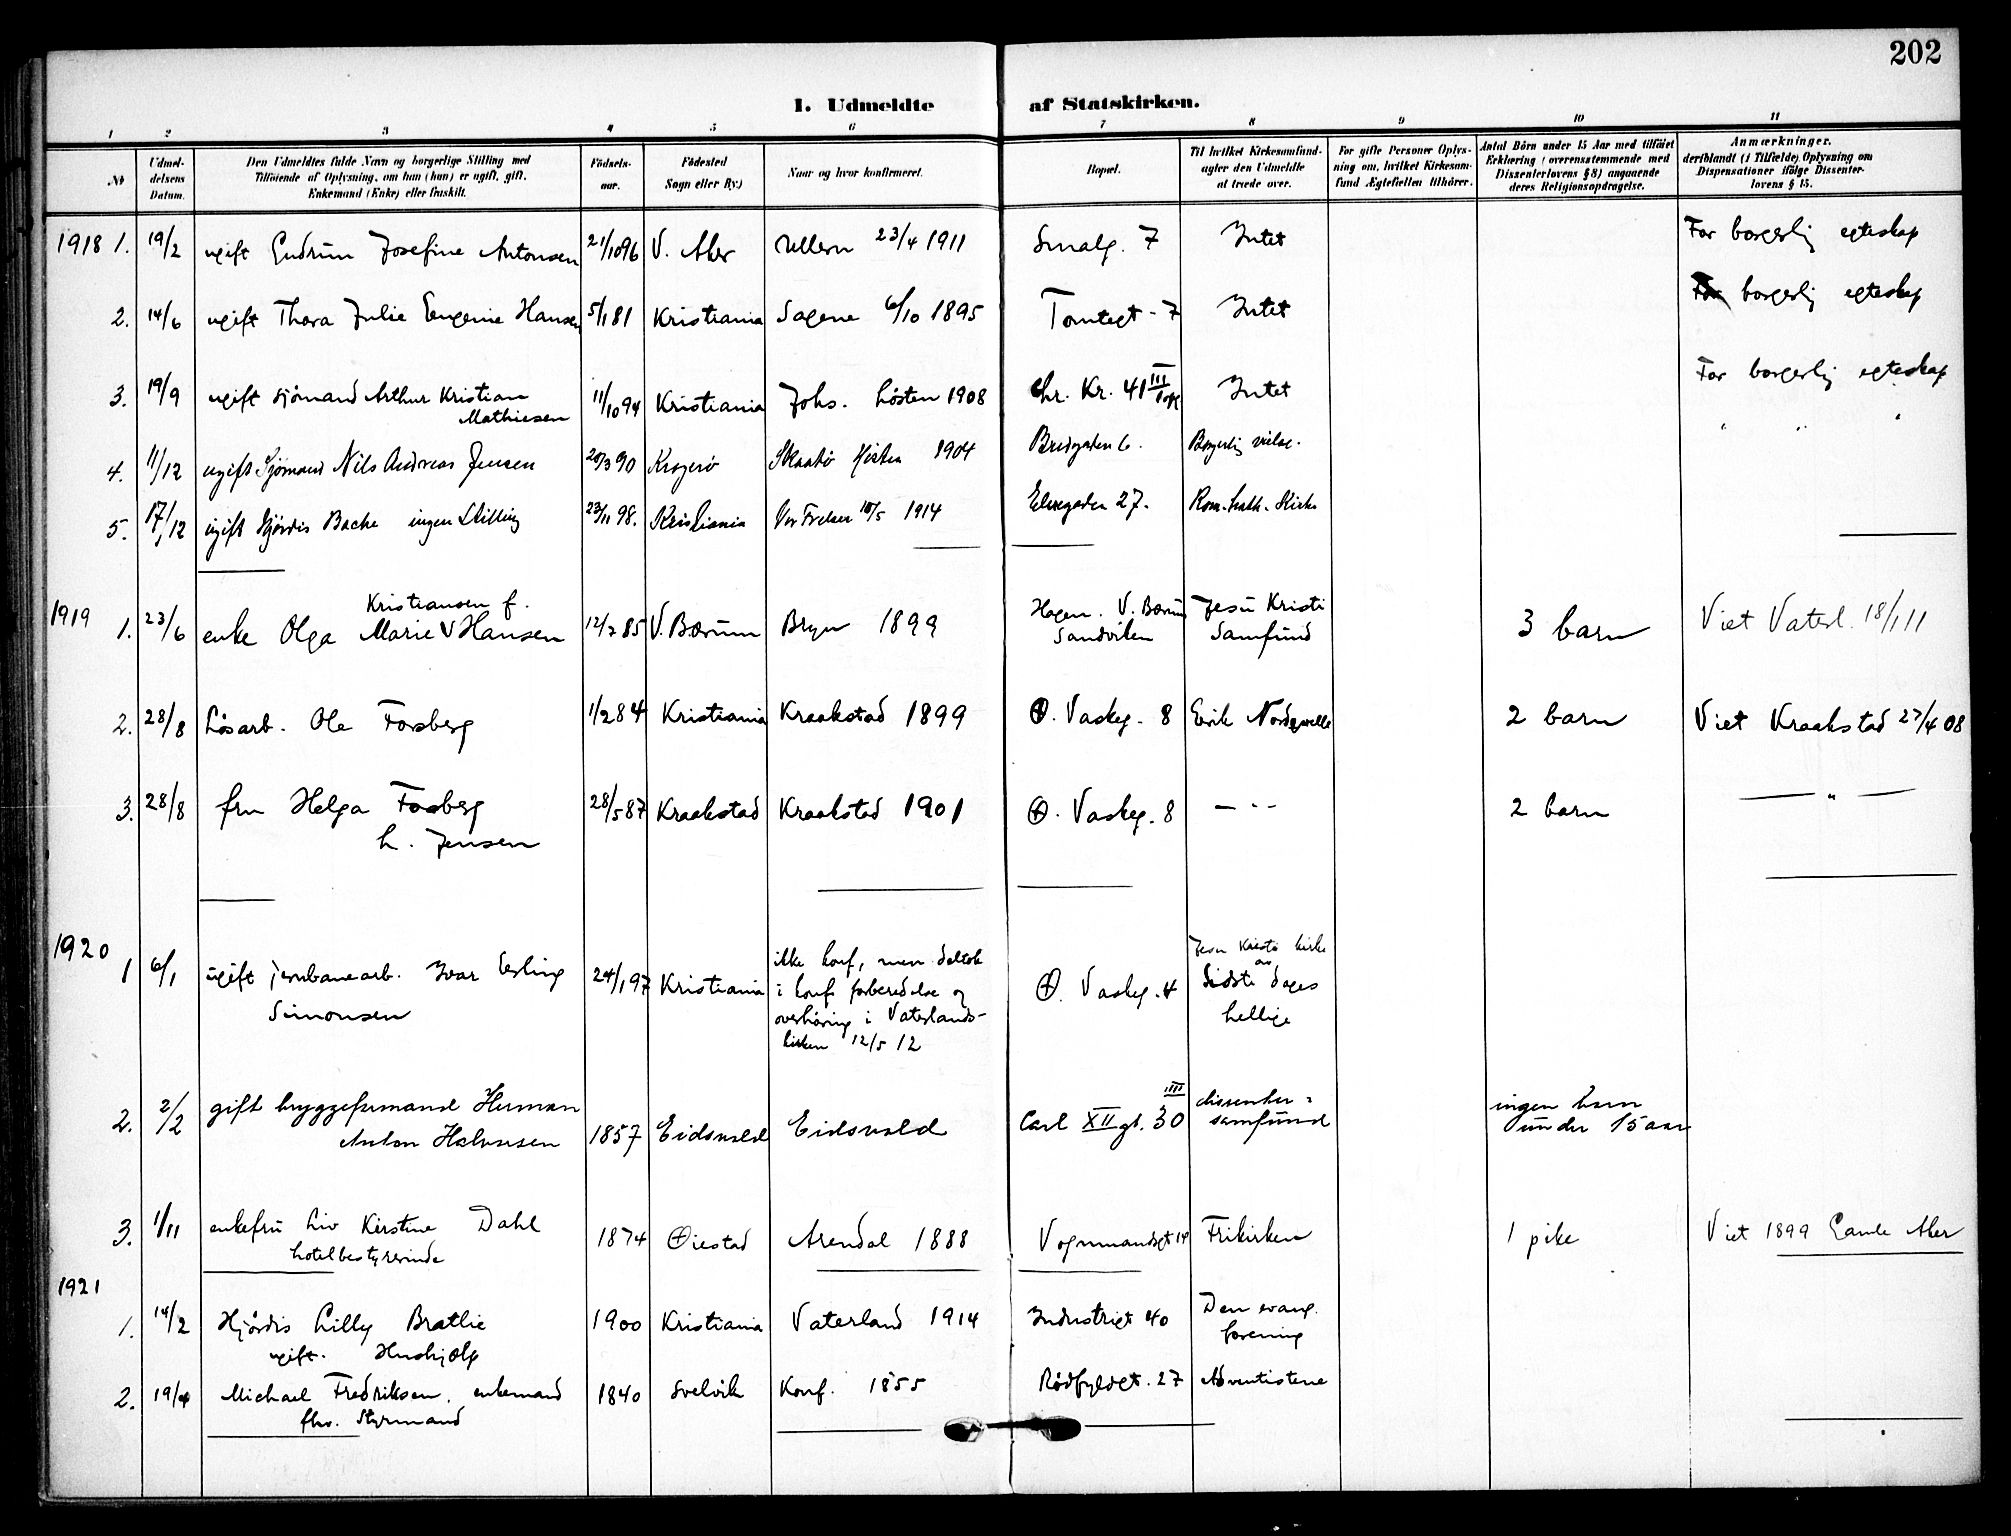 202
I. Udmeldte af Statskirken.
1 2 3 4 5 6 7 8 9 10 11
№
Udmel-
delsens
Datum.
Den Udmeldtes fulde Navn og borgerlige Stilling med
Tilføiende af Oplysning, om han (hun) er ugift, gift,
Enkemand (Enke) eller fraskilt.
Fødsels-
aar.
Fødested
Sogn eller By.)
Naar og hvor konfirmeret.
Bopæl.
Til hvilket Kirkesamfund
agter den Udmeldte
at træde over.
For gifte Personer Oplys-
ning om, hvilket Kirkesam-
fund Ægtefellen tilhører.
Antal Børn under 15 Aar med tilføiet
Erklæring (overensstemmende med
Dissenterlovens § 8) angaaende
deres Religionsopdragelse.
Anmærkninger,
deriblandt (i Tilfælde) Oplysning om
Dispensationer ifølge Dissenter-
lovens § 15.
1918 1. 19/2 ugift Gudrun Josefine Antonsen 21/10 96 V. Aker Ullern 23/4 1911 Smalg. 7 Intet For borgerlig egteskap
2. 14/6 ugift Thora Julie Eugenie Hansen 5/1 81 Kristiania Sagene 6/10 1895 Tomtegt. 7 Intet For borgerlig egteskap
3. 19/9 ugift sjømand Arthur Kristian 11/10 94 Kristiania Johs. høsten 1908 Chr. Kr. 41 III Intet For borgerlig egteskap
Mathiesen
4. 11/12 ugift Sjømand Nils Andreas Jensen 20/3 90 Kragerø Skaatø Høsten 1904 Bredgaden 6. Borgerlig vielse. " " "
5. 17/12 ugift Hjørdis Bache ingen Stilling 23/11 98. Kristiania Vor Frelser 10/5 1914 Elvegaden 27. Rom. kath. Kirke
1919
Kristiansen f.
1. 23/6 enke Olga Marie V Hansen 12/7 85 V. Bærum Bryn 1899 Hagen. V. Bærum Jesu Kristi 3 barn Viet Vaterl. 18/1 11
Sandviken Samfund
2. 28/8 Løsarb. Ole Forberg 1/2 84 Kristiania Kraakstad 1899 Ø. Vaskeg. 8 Erik Nordqvelle 2 barn Viet Kraakstad 27/4 08
3. 28/8 fru Helga Forberg 28/5 87 Kraakstad Kraakstad 1901 Ø. Vaskeg. 8 — " — 2 barn — " —
h. Jensen
1920
1 6/1 ugift jernbanearb. Ivar Erling 24/1 97 Kristiania
Simonsen
ikke konf, men deltok
i konf. forberedelse og
overhøring i Vaterlands-
kirken 12/5 12
Ø. Vaskeg. 4
Jesu Kristi kirke
av
Sidste dages
hellige
2. 2/2 gift bryggeformand Herman
Anton Halvorsen 1857 Eidsvold Eidsvold Carl XII gt. 30 III
dissenter-
samfund
ingen barn
under 15 aar
3. 1/11 enkefru Liv Kirstine Dahl 1874 Øiestad Arendal 1888 Vognmandsgt 14 Frikirken 1 pike Viet 1899 Gamle Aker
hotelbestyrerinde
1921
1. 14/2 Hjørdis Lilly Bratlie 1900 Kristiania Vaterland 1914 Industrigt 40 Den evang.
forening
ugift. Hushjælp
2. 19/4 Michael Fredriksen. enkemand 1840 Svelvik Konf. 1855 Rødfyldgt. 27 Adventistene
fhv. Styrmand